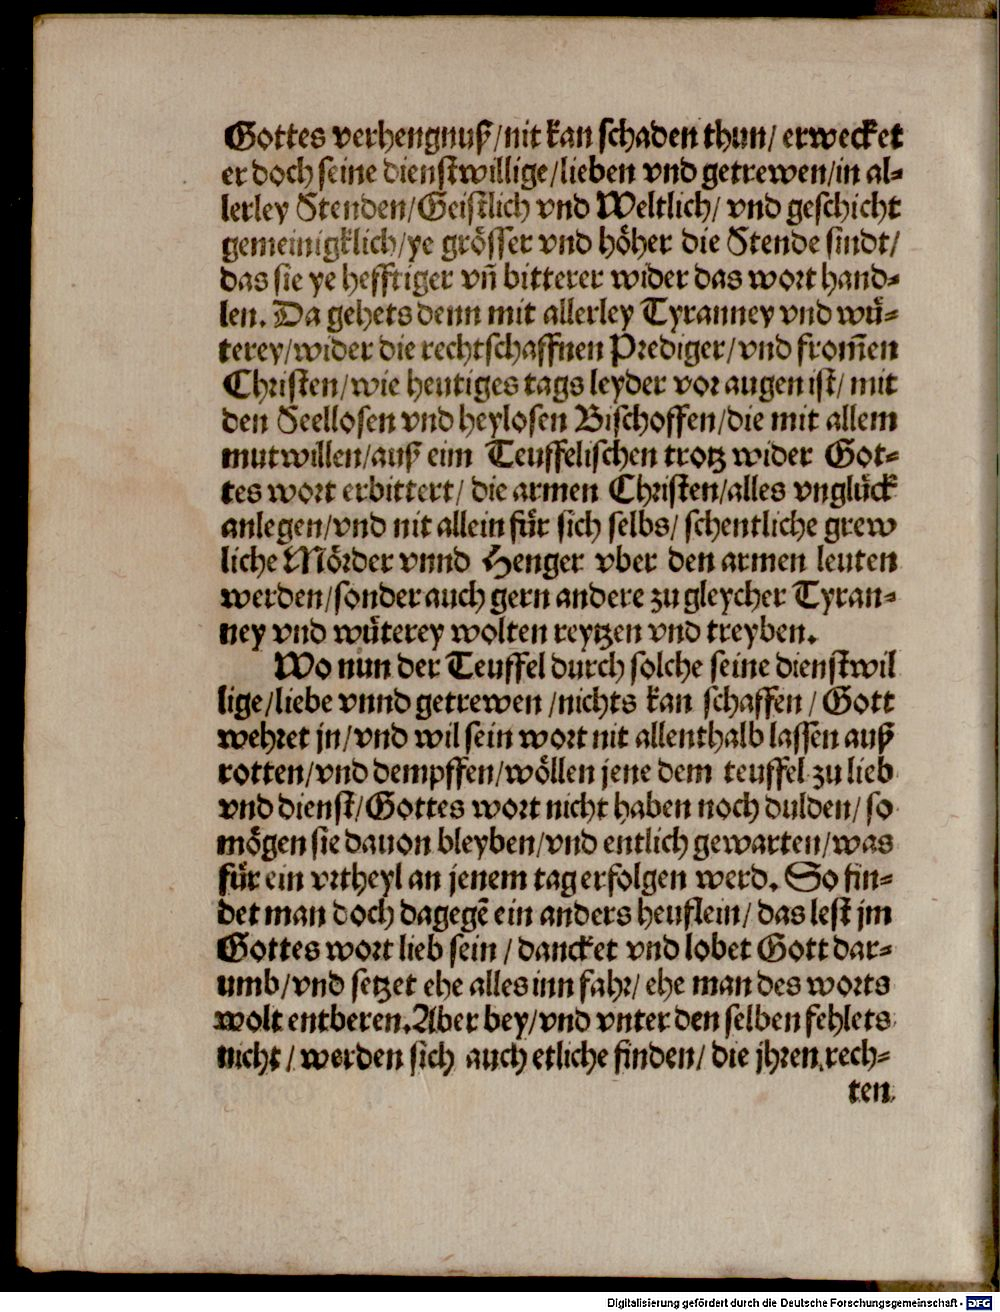 Gottes verhengnuß/nit kan schaden thun/ erwecket
er doch seine dienstwillige/lieben vnd getrewen/in al-
lerley Stenden/Geistlich vnd Weltlich/ vnd geschicht
gemeinigklich/ye grösser vnd höher die Stende sindt/
das sie ye hefftiger vñ bitterer wider das wort hand-
len. Da gehets denn mit allerley Tyranney vnd wü-
terey/wider die rechtschaffnen Prediger/vnd from̃en
Christen/wie heutiges tags leyder vor augen ist/ mit
den Seellosen vnd heylosen Bischoffen/die mit allem
mutwillen/auß eim Teuffelischen trotz wider Got-
tes wort erbittert/ die armen Christen/alles vnglück
anlegen/vnd nit allein für sich selbs/ schentliche grew
liche Mörder vnnd Henger vber den armen leuten
werden/sonder auch gern andere zu gleycher Tyran-
ney vnd wüterey wolten reytzen vnd treyben.
Wo nun der Teuffel durch solche seine dienstwil
lige/liebe vnnd getrewen /nichts kan schaffen / Gott
wehret jn/vnd wil sein wort nit allenthalb lassen auß
rotten/vnd dempffen/wöllen jene dem teuffel zu lieb
vnd dienst/Gottes wort nicht haben noch dulden/ so
mögen sie dauon bleyben/vnd entlich gewarten/was
für ein vrtheyl an jenem tag erfolgen werd. So fin-
det man doch dagegẽ ein anders heuflein/ das lest jm
Gottes wort lieb sein / dancket vnd lobet Gott dar-
umb/vnd setzet ehe alles inn fahr/ ehe man des worts
wolt entberen. Aber bey/vnd vnter den selben fehlets
nicht / werden sich auch etliche finden/ die jhren rech-
ten
Digitalisierung gefördert durch die Deutsche Forschungsgemeinschaft - DFG